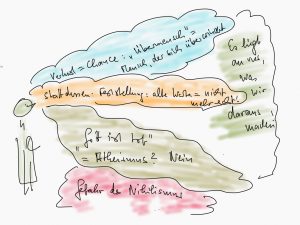 Verlust = Chance: "Übermensch" =
Mensch, der sich überwindet
Stattdessen: Feststellung: alte Werte = nicht
mehr echt!
"Gott ist tot"
= Atheismus? Nein
Gefahr des Nihilismus
Es liegt
an uns,
was
wir
daraus
machen